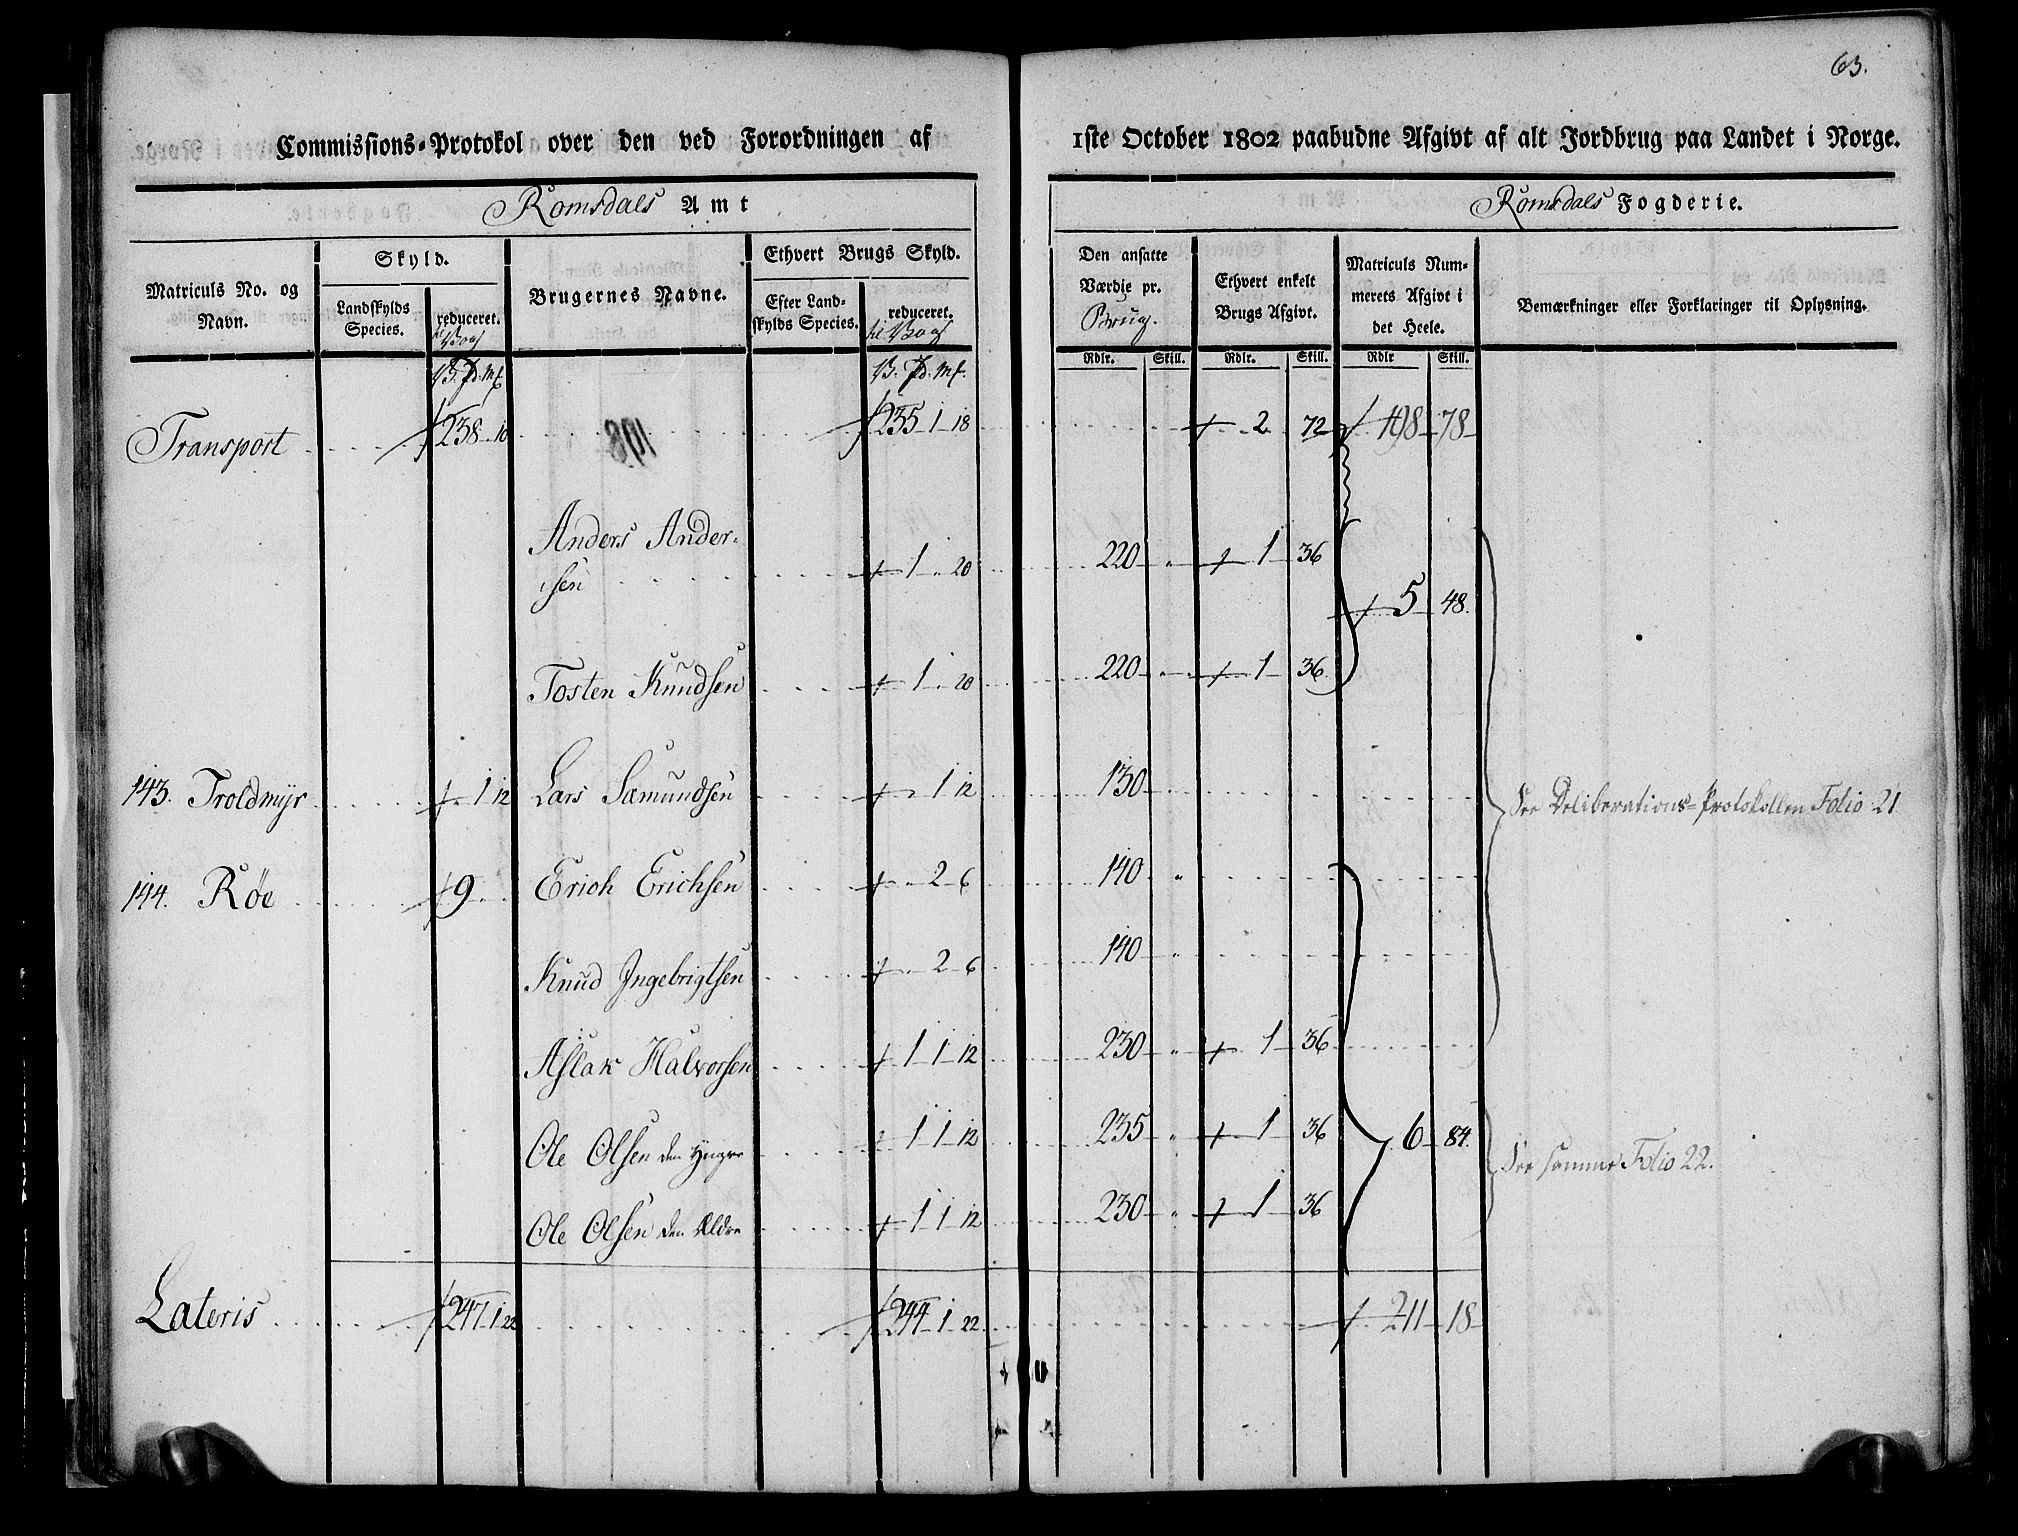 63.
Commissions-Protokol over den ved Forordningen af 1ste October 1802 paabudne Afgivt af alt Jordbrug paa Landet i Norge.
Romsdals Amt
Romsdals Fogderie.
Matriculs No. og Navn.
Skyld.
Landskylds Species.
reduceret. til Vog
Brugernes Navne.
Ethvert Brugs Skyld.
Efter Landskylds Species.
reduceret. til Vog
Den ansatte Værdie pr. Brug.
Ethvert enkelt Brugs Afgivt.
Matriculs Nummerets Afgivt i det Heele.
Bemærkninger eller Forklaringer til Oplysning.
V. Pd. Mk. V. Pd. Mk. Rdlr. Skill. Rdlr. Skill. Rdlr Skill.
Transport 238 - 10 235 1 18 2 72 198 78
Anders Andersen 1 - 20 220 " 1 36
5 48.
Tosten Knudsen 1 - 20 220 " 1 36
143. Troldmyr - 1 12 Lars Samundsen - 1 12 130
See Deliberations-Protokollen Folio 21
144. Røe 9 - - Erich Erichsen - 2 6 140 "
Knud Ingebrigtsen - 2 6 140 "
Aslak Halvorsen 1 1 12 230 " 1 36
Ole Olsen den Yngre 1 1 12 235 " 1 36 6 84.
See samme Folio 22.
Ole Olsen den Ældre 1 1 12 230 " 1 36
Lateris 247 1 22 244 1 22 211 18